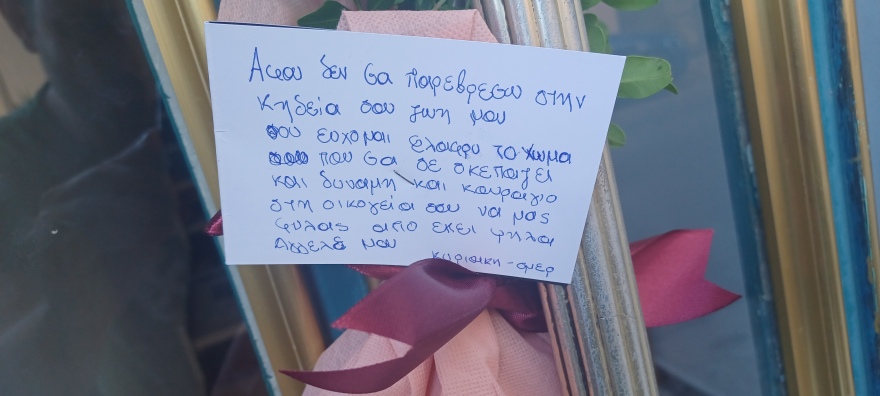 Αφου δεν θα παρεβρεθω στην
κηδεία σου ζωη μου
σου ευχομαι ελαφρυ το χωμα
που θα σε σκεπαζει
και δυναμη και κουραγιο
στη οικογεία σου να μας
φυλας απο εκει ψηλα
Αγγελέ μου
κυριακη - ομερ